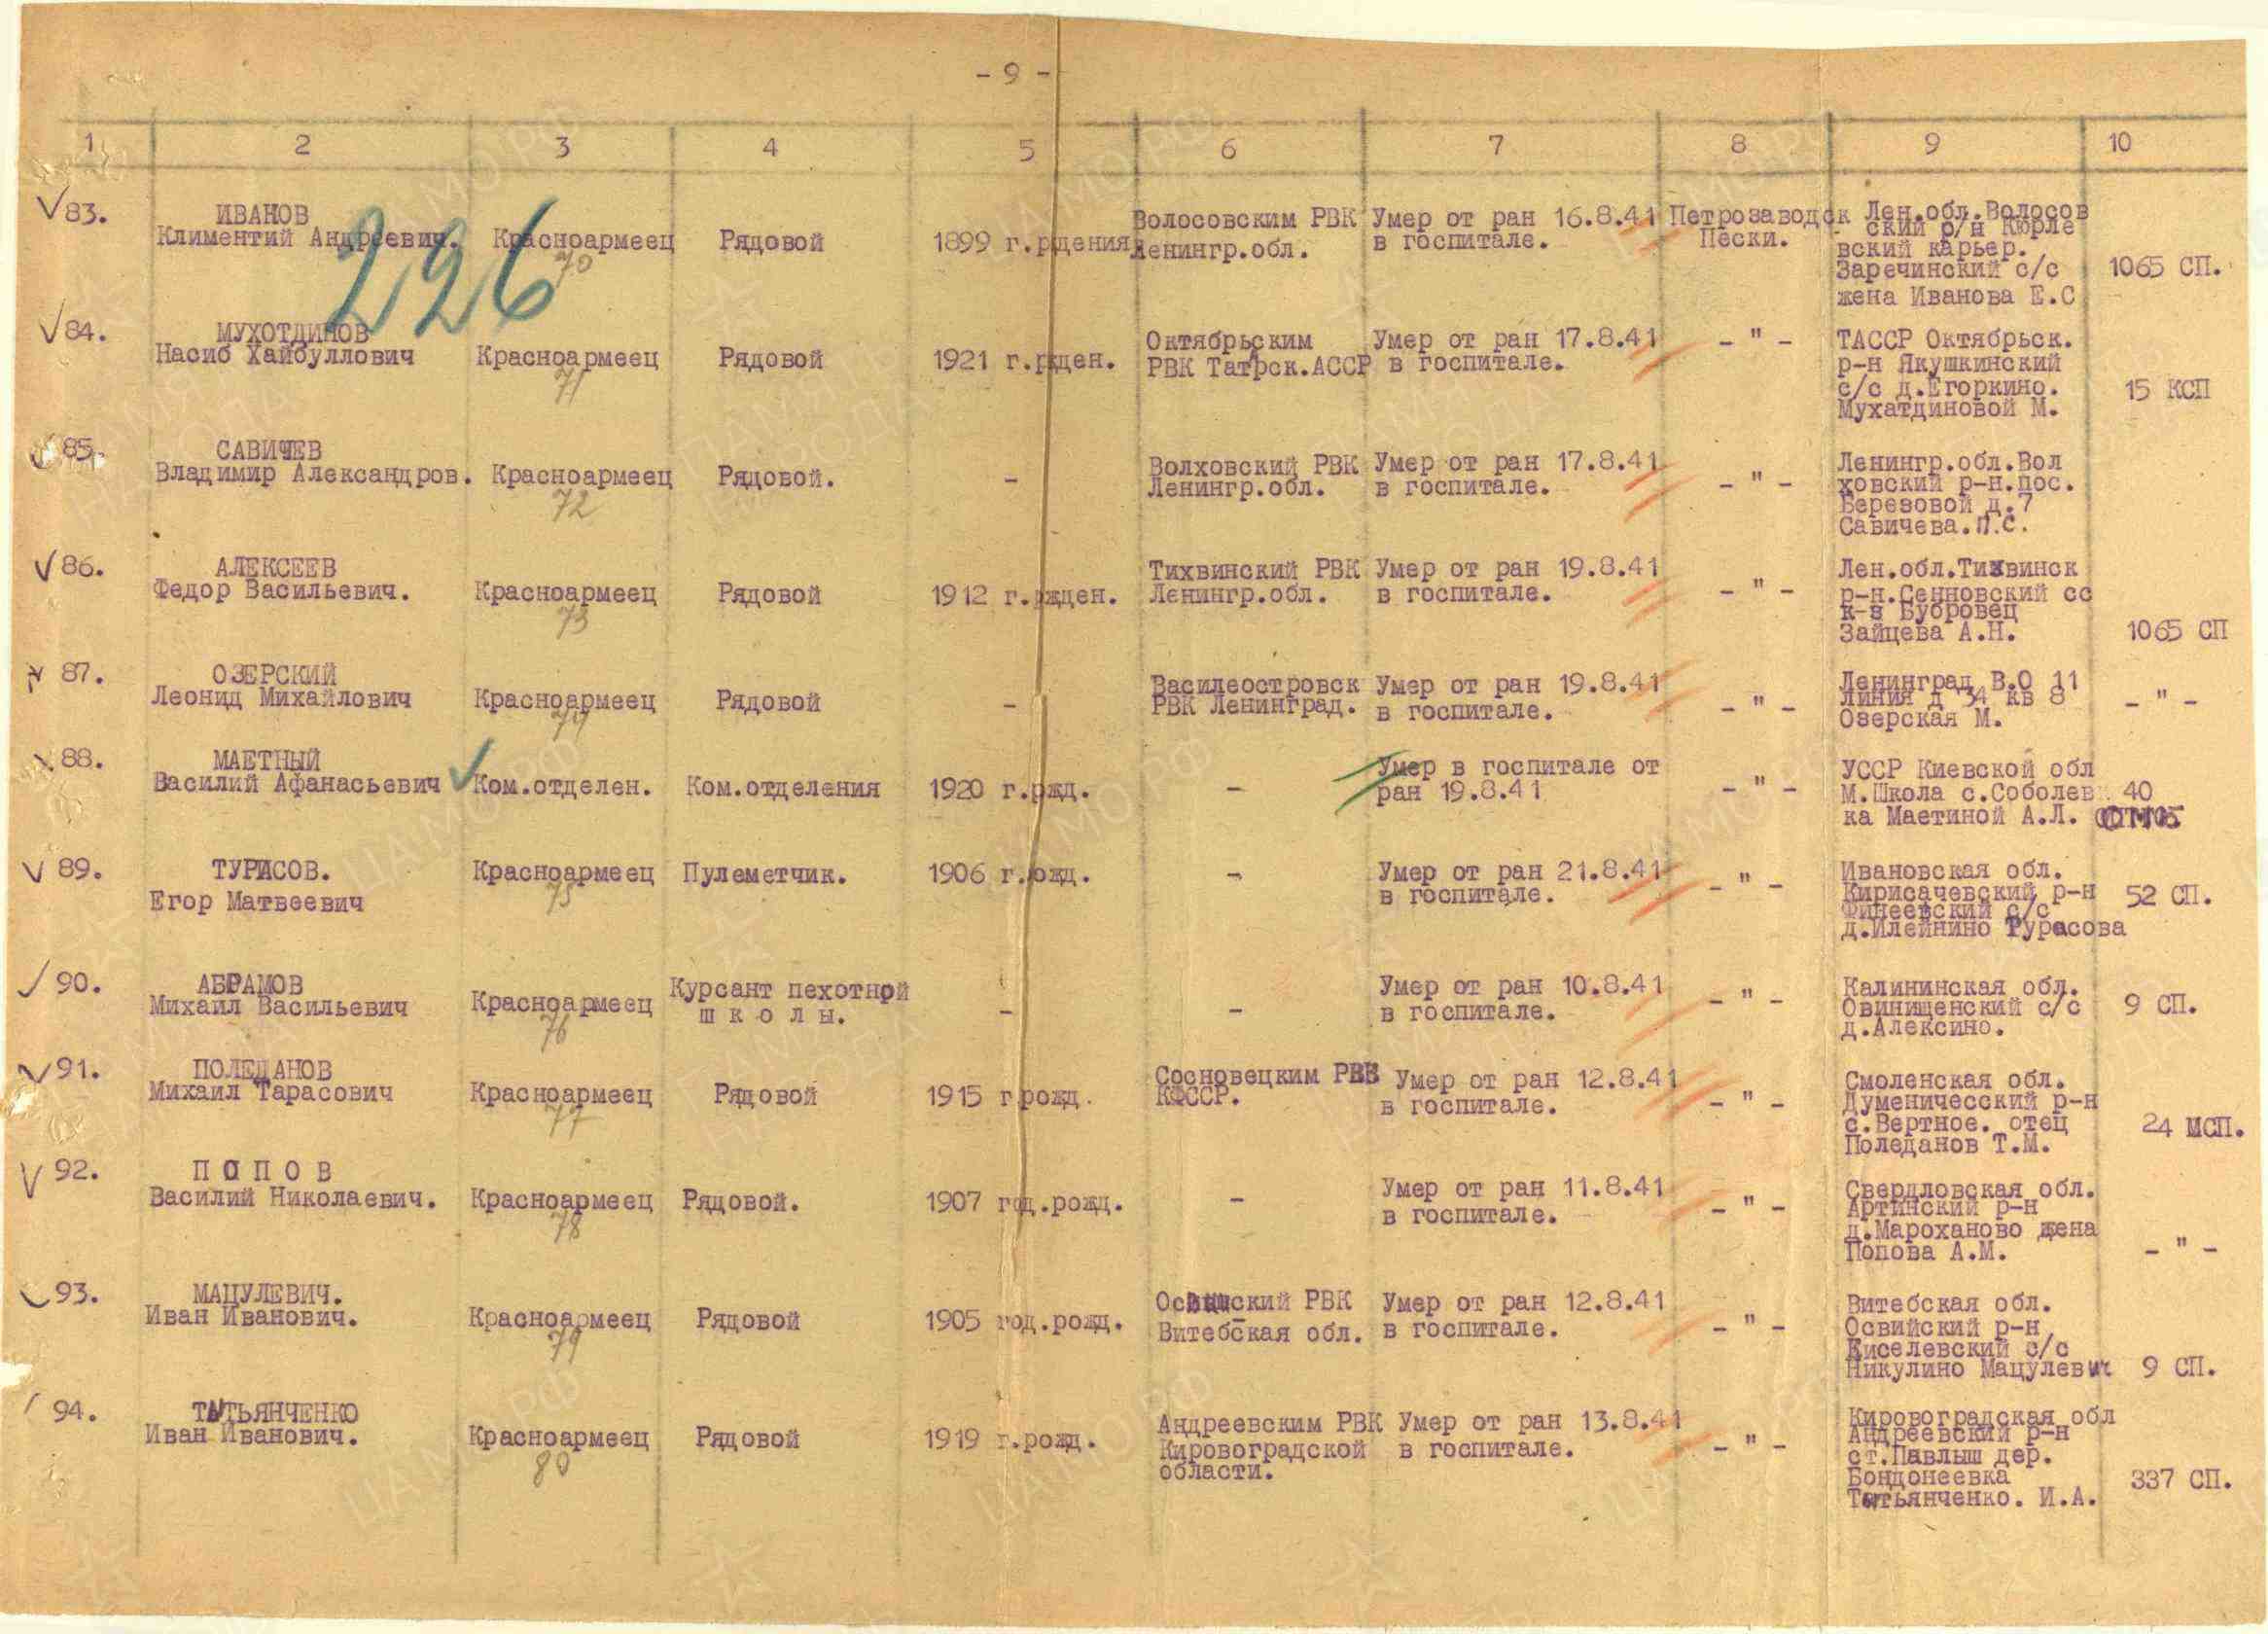 - 9 -
1 2 3 4 5 6 7 8 9 10
83. ИВАНОВ
Климентий Андреевич. Красноармеец Рядовой 1899 г.рдения Волосовским РВК Ленингр.обл. Умер от ран 16.8.41 в госпитале. Петрозаводск Пески. Лен.обл.Волосов
ский р/н Кюрле
вский карьер.
Заречинский с/с 1065 СП.
жена Иванова Е.С
226
70
84. МУХОТДИНОВ
Насиб Хайбуллович Красноармеец Рядовой 1921 г.ржден. Октябрьским РВК Татрск.АССР Умер от ран 17.8.41 в госпитале. - " - ТАССР Октябрьск.
р-н Якушкинский
с/с д.Егоркино. 15 КСП
Мухатдиновой М.
71
85. САВИЧЕВ
Владимир Александров. Красноармеец Рядовой. - Волховский РВК Ленингр.обл. Умер от ран 17.8.41 в госпитале. - " - Ленингр.обл.Вол
ховский р-н.пос.
Березовой д.7
Савичева.П.С.
72
86. АЛЕКСЕЕВ
Федор Васильевич. Красноармеец Рядовой 1912 г.ржден. Тихвинский РВК Ленингр.обл. Умер от ран 19.8.41 в госпитале. - " - Лен.обл.Тихвинск
р-н.Сенновский сс
к-з Бубровец
Зайцева А.Н. 1065 СП
73
87. ОЗЕРСКИЙ
Леонид Михайлович Красноармеец Рядовой - Василеостровск РВК Ленинград. Умер от ран 19.8.41 в госпитале. - " - Ленинград В.О 11
линия д 34 кв 8 - " -
Озерская М.
74
88. МАЕТНЫЙ
Василий Афанасьевич Ком.отделен. Ком.отделения 1920 г.ржд. - Умер в госпитале от ран 19.8.41 - " - УССР Киевской обл
М.Школа с.Соболев 40
ка Маетиной А.Л.
89. ТУРИСОВ.
Егор Матвеевич Красноармеец Пулеметчик. 1906 г.рожд. - Умер от ран 21.8.41 в госпитале. - " - Ивановская обл.
Кирисачевский р-н 52 СП.
Финеевский с/с
д.Илейнино Турасова
75
90. АБРАМОВ
Михаил Васильевич Красноармеец Курсант пехотной школы. - - Умер от ран 10.8.41 в госпитале. - " - Калининская обл.
Овинищенский с/с 9 СП.
д.Алексино.
76
91. ПОЛЕДАНОВ
Михаил Тарасович Красноармеец Рядовой 1915 г рожд. Сосновецким РВК КФССР. Умер от ран 12.8.41 в госпитале. - " - Смоленская обл.
Думеничесский р-н
с.Вертное. отец 24 МСП.
Поледанов Т.М.
77
92. ПОПОВ
Василий Николаевич. Красноармеец Рядовой. 1907 год.рожд. - Умер от ран 11.8.41 в госпитале. - " - Свердловская обл.
Артинский р-н
д.Мароханово жена
Попова А.М. - " -
78
93. МАЦУЛЕВИЧ.
Иван Иванович. Красноармеец Рядовой 1905 год.рожд. РВК Витебская обл. Умер от ран 12.8.41 в госпитале. - " - Витебская обл.
Освийский р-н
Киселевский с/с
Никулино Мацулевич 9 СП.
79
94. ТАТЬЯНЧЕНКО
Иван Иванович. Красноармеец Рядовой 1919 г.рожд. Андреевским РВК Кировоградской области. Умер от ран 13.8.41 в госпитале. - " - Кировоградская обл
Андреевский р-н
ст.Павлыш дер.
Бондонеевка 337 СП.
Татьянченко. И.А.
80